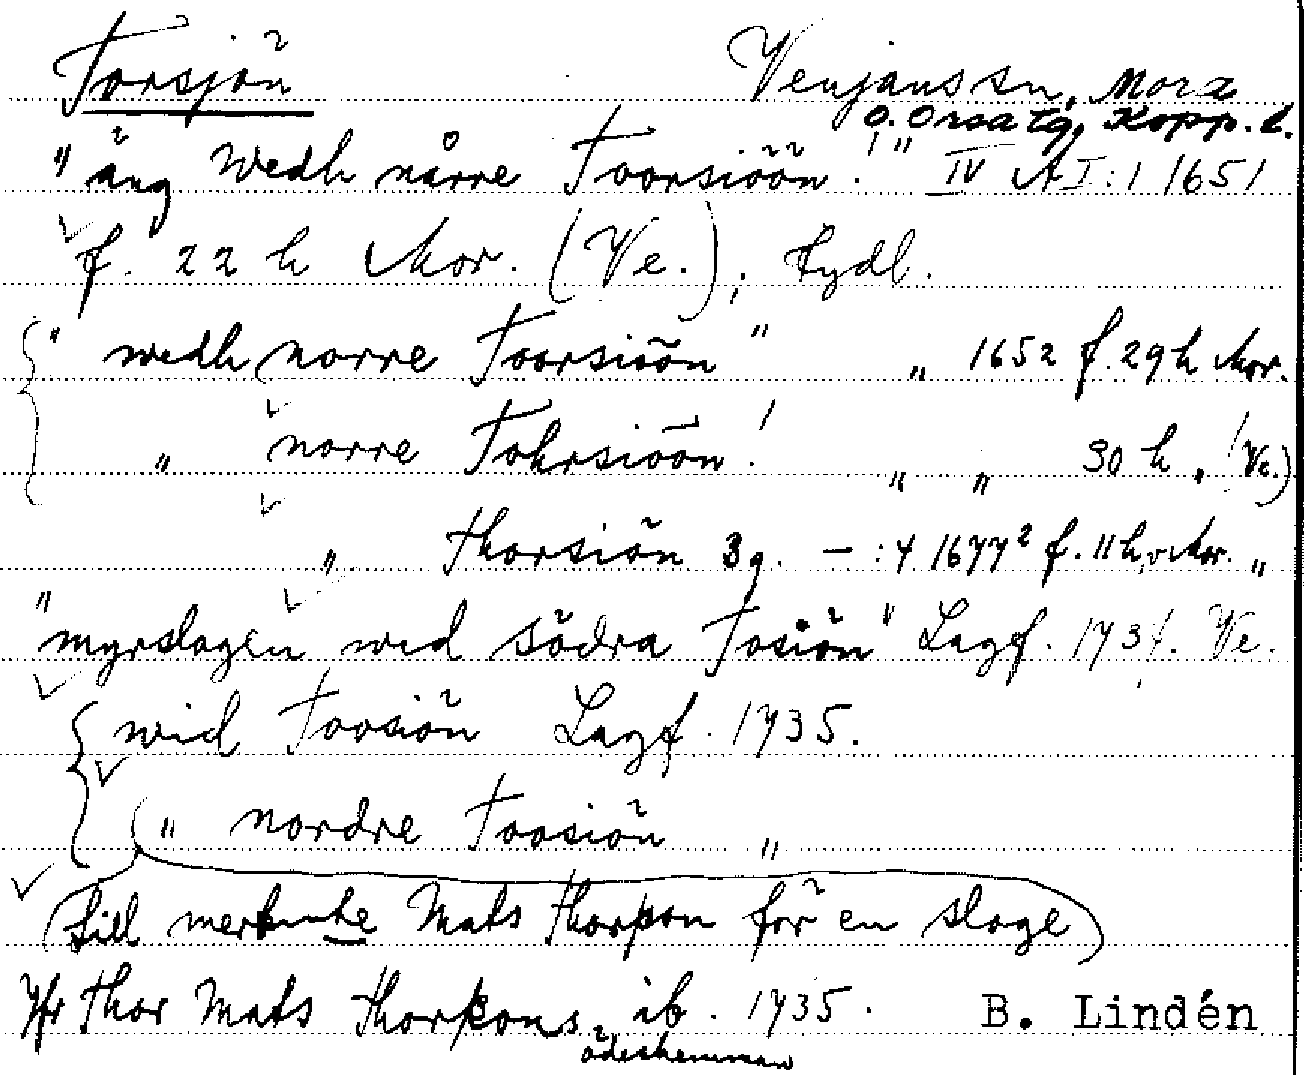 Torsjön Venjans sn, Mora
o. Orsa tg, Kopp. l.
"äng wedh nårre Toorsiöön!" IV A I:1 1651
f. 22 h Mor. (Ve.), tydl.
" wedh norre Toorsiöön " " 1652 f. 29 h Mor.
" norre Tohrsiöön! " " 30 h " (Ve.)
" thorsiön 3g. — :4 1677² f. 11 h, Mor. "
"myrslagen wid södra Tosiön" Lagf. 1734. Ve.
wid Toosiön Lagf. 1735.
" nordre Toosiön "
(till Mats för en sloge)
Jfr Thor Mats ib. 1735. B. Lindén
ödeshemman